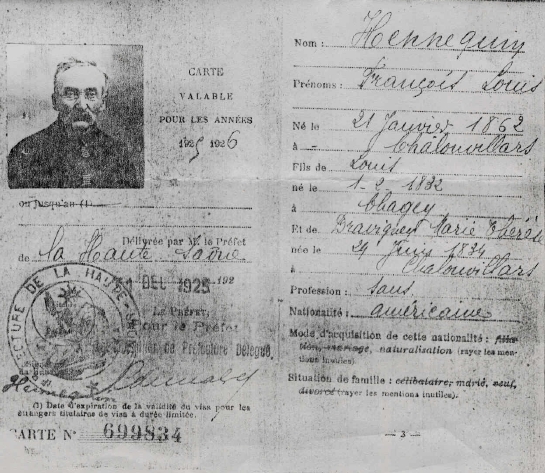 CARTE
VALABLE
POUR LES ANNÉES
1925 1926
ou jusqu'au (1)
Délivrée par M. le Préfet
de la Haute Saône
1 DEC 1925 192
LE PRÉFET,
Pour le Préfet
de Préfecture Délégué
PRÉFECTURE DE LA HAUTE-S
Hennequin
(1) Date d'expiration de la validité du visa pour les
étrangers titulaires de visa à durée limitée.
CARTE N° 699834
Nom : Hennequin
Prénoms : François Louis
Né le 21 Janvier 1862
à Châlonvillars
Fils de Louis
né le 1-2 1832
à Chagey
Et de Marie
née le 24 Juin 1834
à Chalonvillars
Profession : sans
Nationalité : américaine
Mode d'acquisition de cette nationalité : filia-
tion, mariage, naturalisation (rayer les men-
tions inutiles).
Situation de famille : célibataire, marié, veuf,
divorcé (rayer les mentions inutiles).
— 3 —